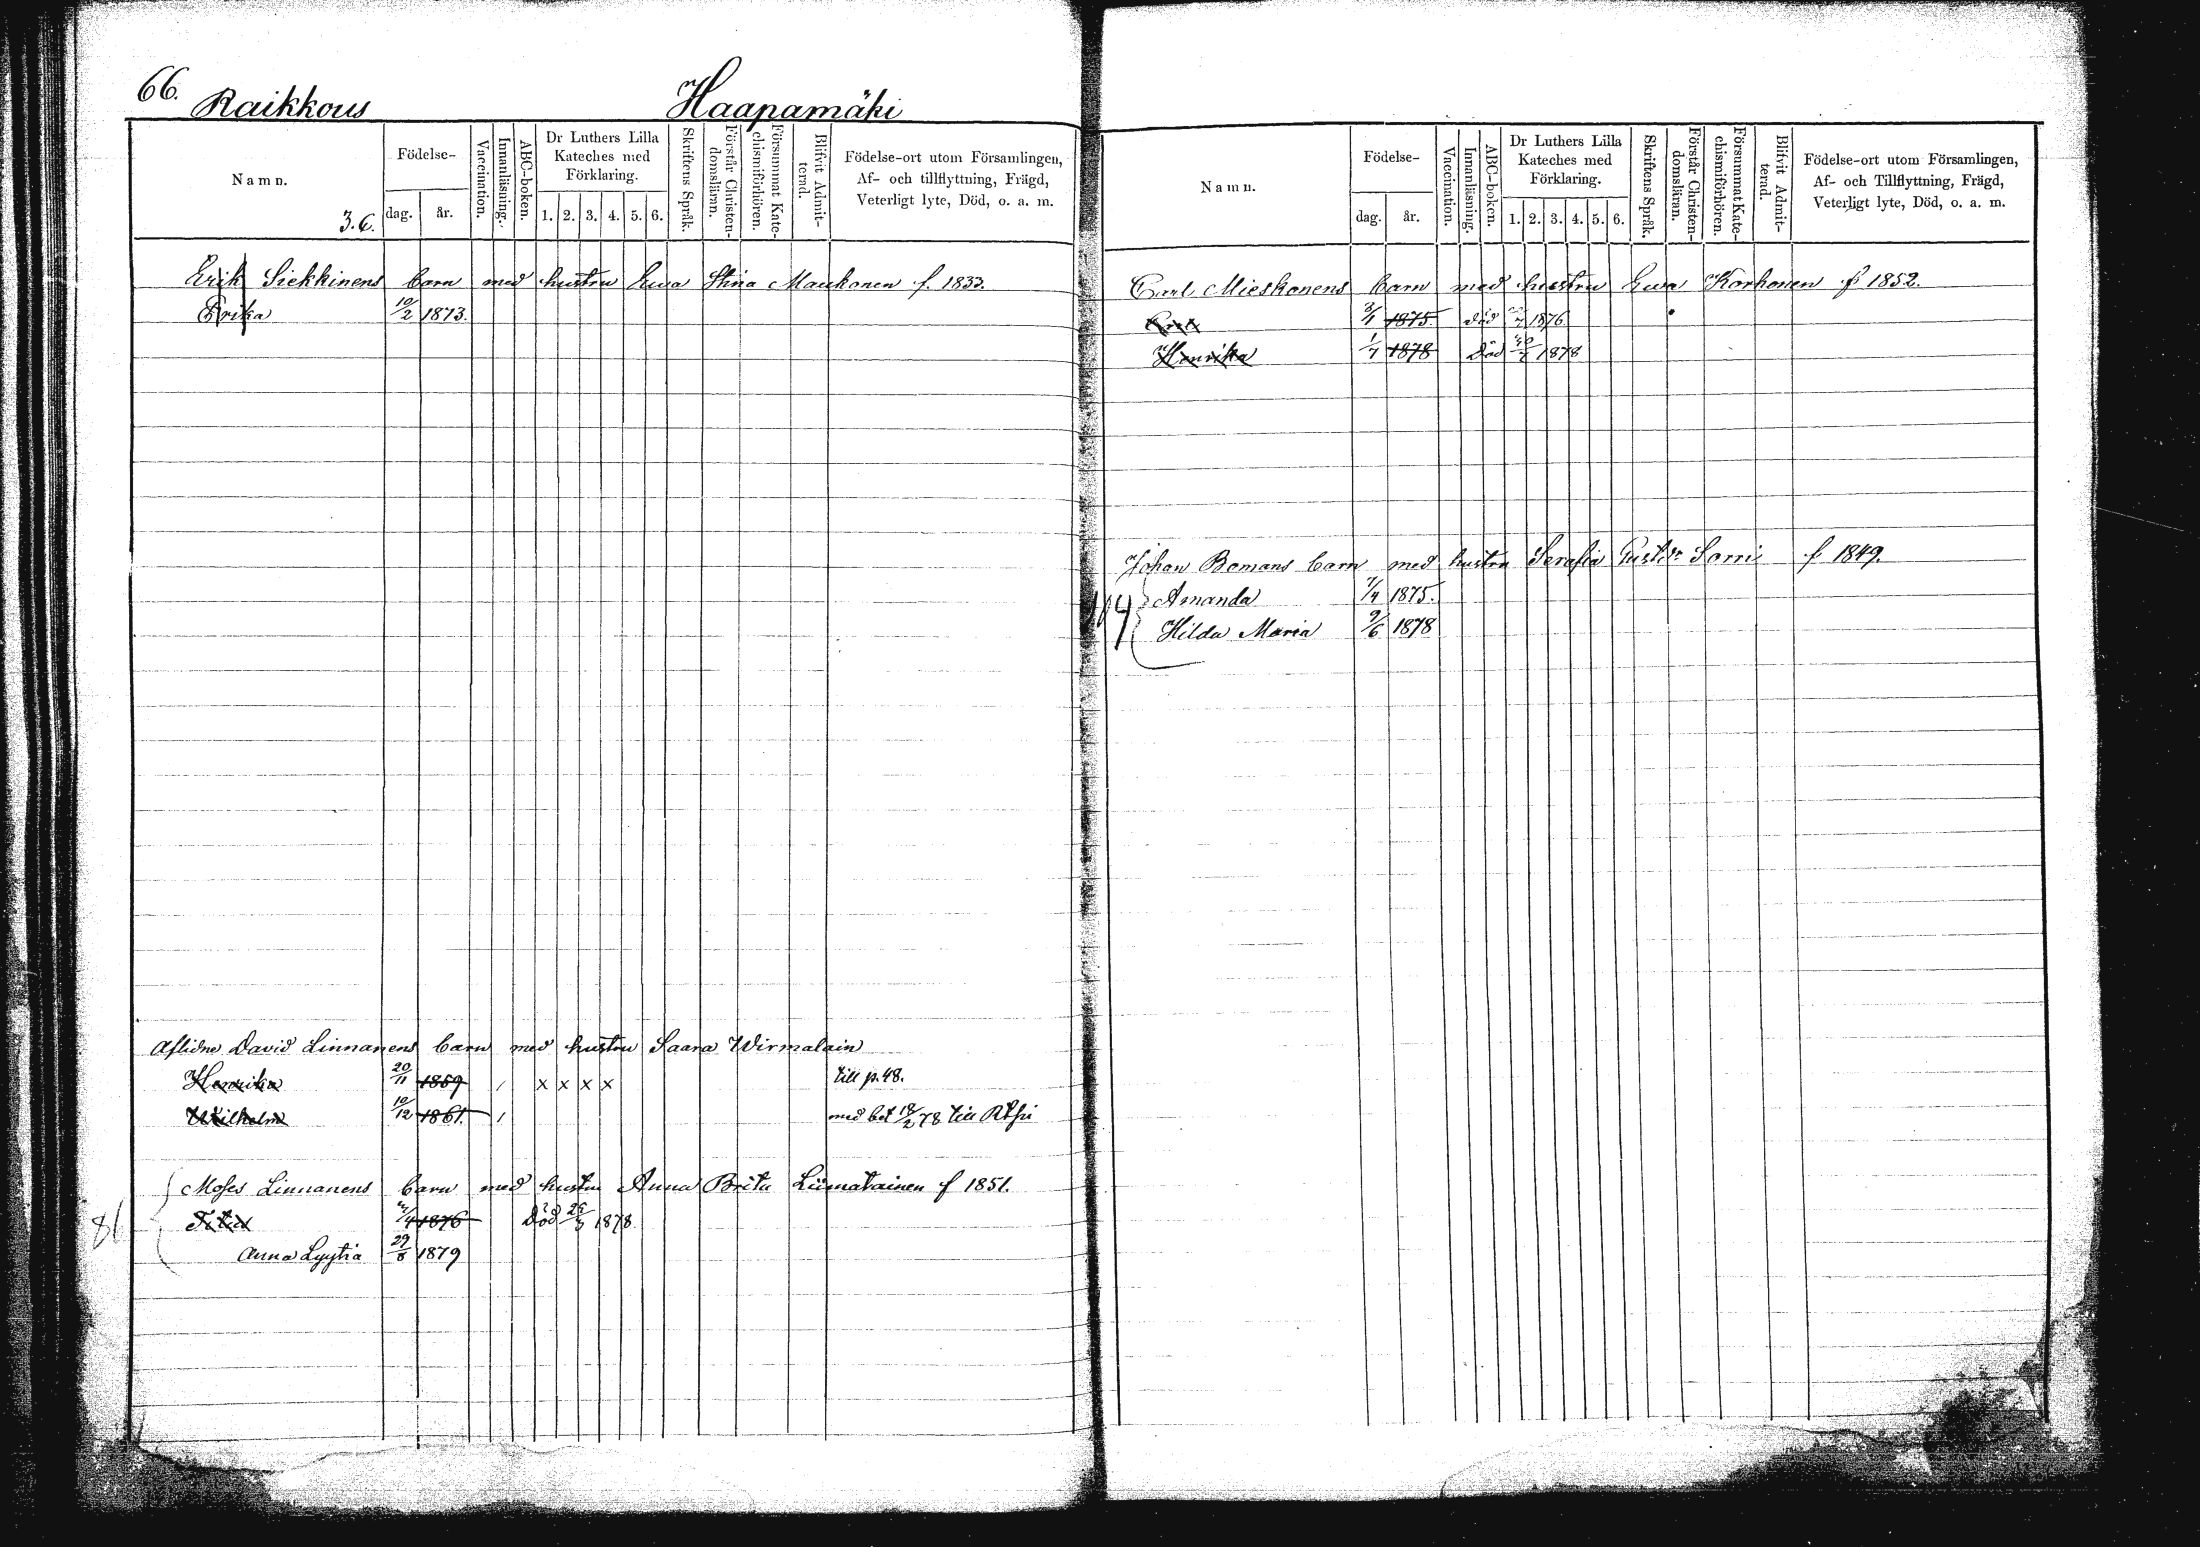 66. Raikkous Haapamäki
Namn.
3.6.
Födelse-
dag. år.
Vaccination.
Innanläsning.
ABC-boken.
Dr Luthers Lilla
Kateches med
Förklaring.
1. 2. 3. 4. 5. 6.
Skriftens Språk.
Förstår Christen-
domsläran.
Försummat Kate-
chismiförhören.
Blifvit Admit-
terad.
Födelse-ort utom Församlingen,
Af- och tillflyttning, Frägd,
Veterligt lyte, Död, o. a. m.
Erik Siekkinens barn med hustru Ewa Stina Maukonen f. 1833.
Erika 10/2 1873.
Aflidne David Linnanens barn med hustru Saara Wirmalain
Henrika 20/11 1859 / x x x x till p. 48.
Wilhelm 10/12 1861. / med bet 18/2 78 till
Moses Linnanens barn med hustru Anna Brita Liimatainen f 1851.
81
1876 Död 1878
Anna Lyytia 29/8 1879
Namn.
Födelse-
dag. år.
Vaccination.
Innanläsning.
ABC-boken.
Dr Luthers Lilla
Kateches med
Förklaring.
1. 2. 3. 4. 5. 6.
Skriftens Språk.
Förstår Christen-
domsläran.
Försummat Kate-
chismiförhören.
Blifvit Admit-
terad.
Födelse-ort utom Församlingen,
Af- och Tillflyttning, Frägd,
Veterligt lyte, Död, o. a. m.
Carl Mieskonens barn med hustru Ewa Korhonen f 1852.
3/1 1875. död 1876
Henrika 1/7 1878 Död 1878
Johan Bomans barn med hustru Serafia Gustdr Sorri f 1849.
Amanda 7/4 1875.
Hilda Maria 9/6 1878